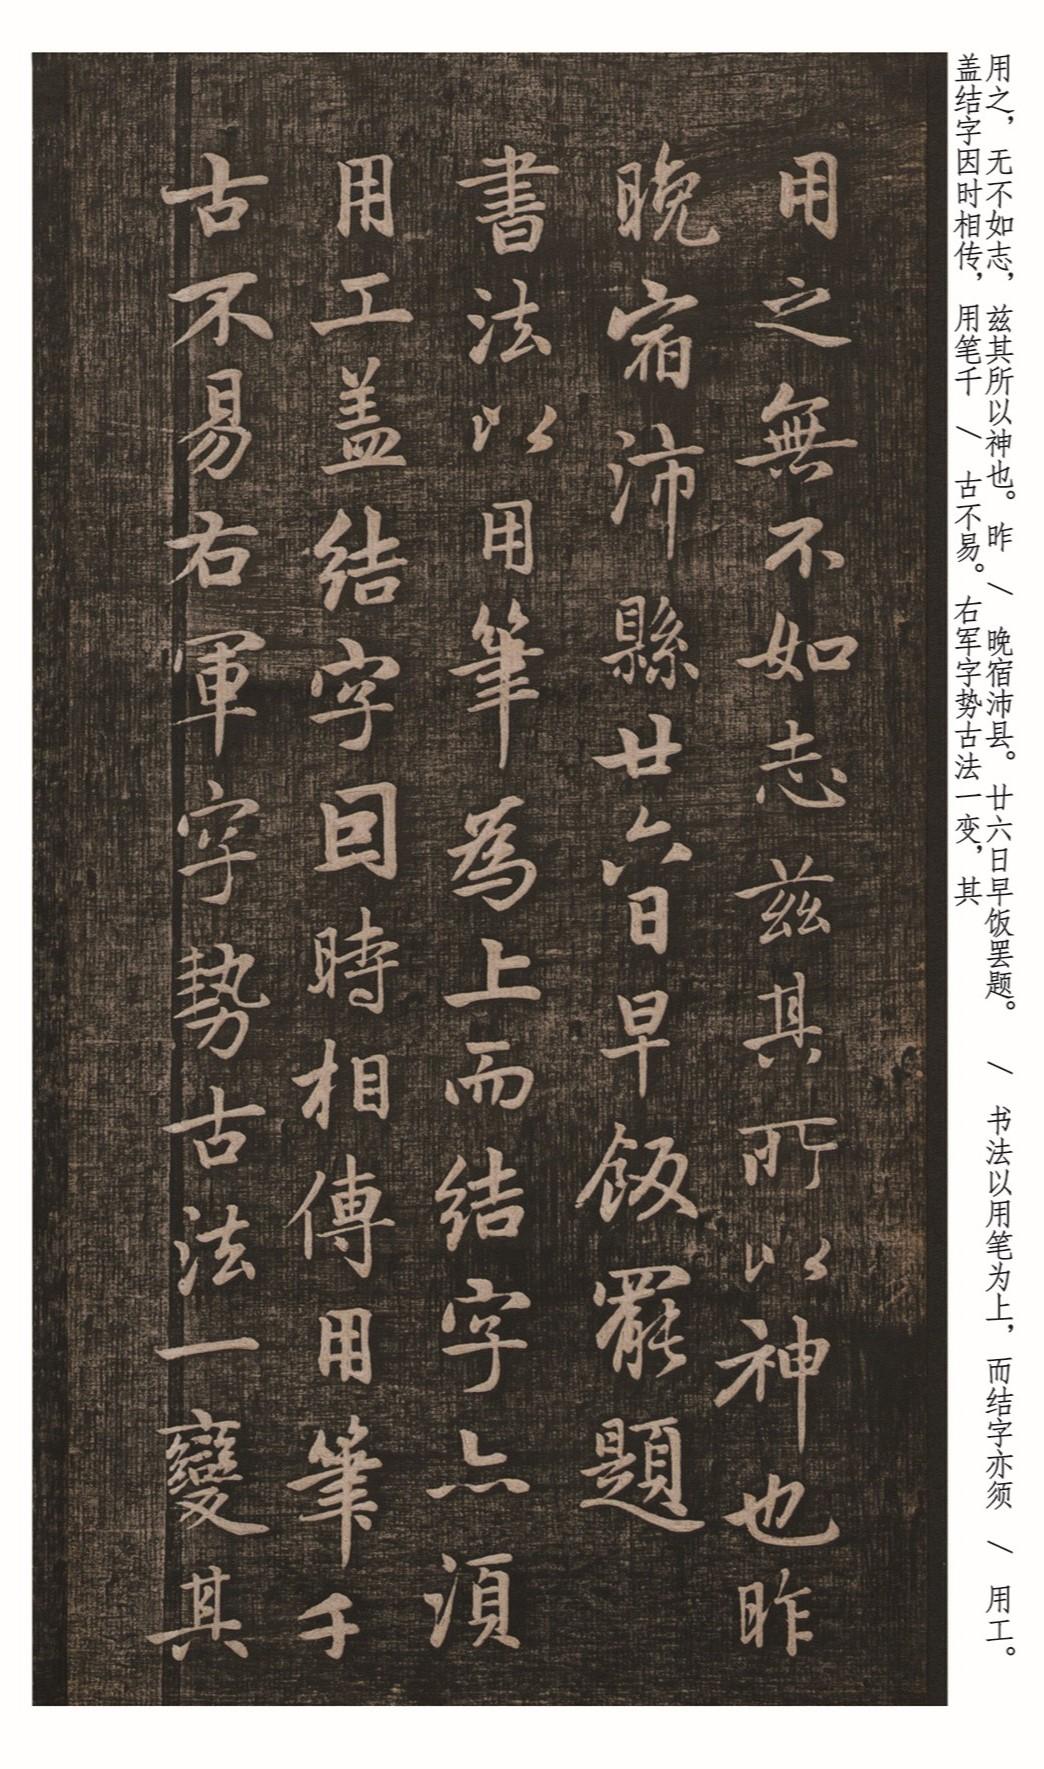 用之，无不如志，兹其所以神也。昨 / 晚宿沛县。廿六日早饭罢题。 / 书法以用笔为上，而结字亦须 / 用工。
盖结字因时相传，用笔千 / 古不易。右军字势古法一变，其
用之無不如志茲其所以神也昨
晚宿沛縣廿六日早飯罷題
書法以用筆為上而結字亦須
用工盖結字因時相傳用筆千
古不易右軍字勢古法一變其